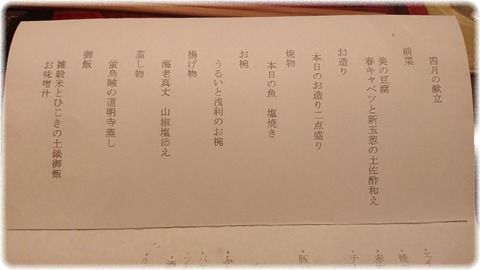 四月の献立
前菜
美の豆腐
春キャベツと新玉葱の土佐酢和え
お造り
本日のお造り二点盛り
焼物
本日の魚　塩焼き
お椀
うるいと浅利のお椀
揚げ物
海老真丈　山椒塩添え
蒸し物
蛍烏賊の道明寺蒸し
御飯
雑穀米とひじきの土鍋御飯
お味噌汁